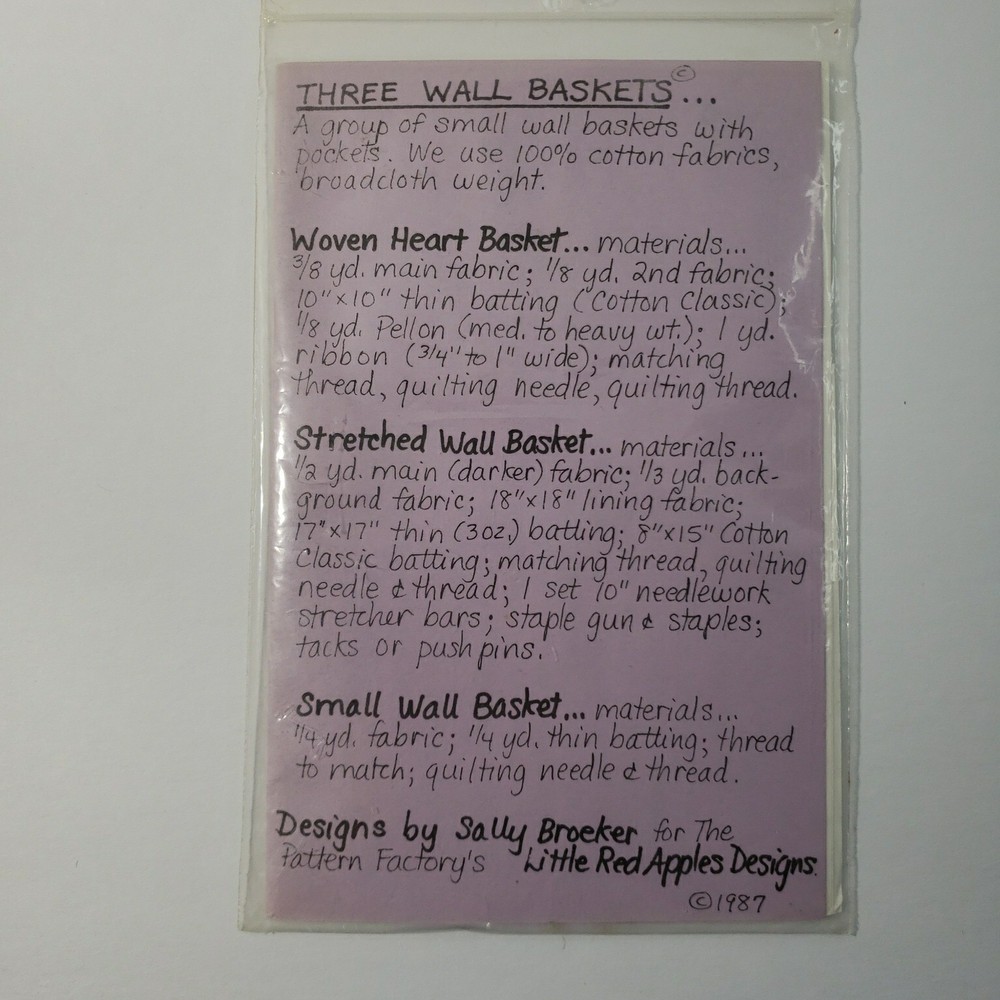 THREE WALL BASKETS©...
A group of small wall baskets with
pockets. We use 100% cotton fabrics,
broadcloth weight.
Woven Heart Basket... materials...
3/8 yd. main fabric; 1/8 yd. 2nd fabric;
10"x10" thin batting (Cotton Classic);
1/8 yd. Pellon (med. to heavy wt.); 1 yd.
ribbon (3/4" to 1" wide); matching
thread, quilting needle, quilting thread.
Stretched Wall Basket... materials...
1/2 yd. main (darker) fabric; 1/3 yd. back-
ground fabric; 18"x18" lining fabric;
17"x17" thin (3oz.) batting; 8"x15" Cotton
Classic batting; matching thread, quilting
needle & thread; 1 set 10" needlework
stretcher bars; staple gun & staples;
tacks or push pins.
Small Wall Basket... materials...
1/4 yd. fabric; 1/4 yd. thin batting; thread
to match; quilting needle & thread.
Designs by Sally Broeker for The
Pattern Factory's Little Red Apples Designs.
©1987